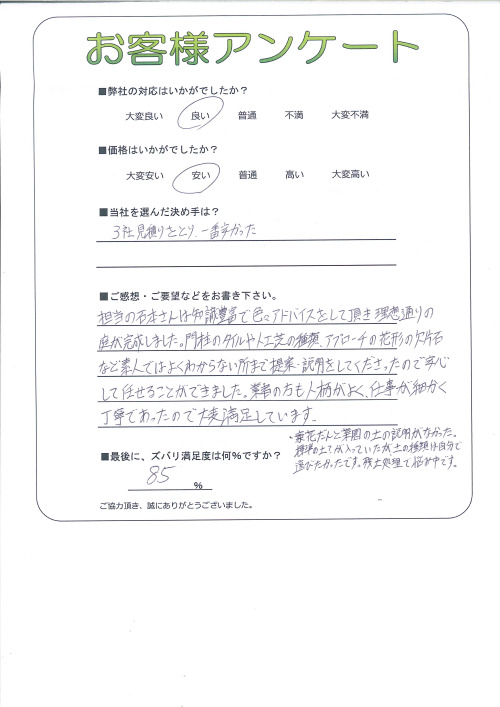 お客様アンケート
■弊社の対応はいかがでしたか？
大変良い 良い 普通 不満 大変不満
■価格はいかがでしたか？
大変安い 安い 普通 高い 大変高い
■当社を選んだ決め手は？
3社見積りをとり、一番安かった
■ご感想・ご要望などをお書き下さい。
担当の石本さんは知識豊富で色々アドバイスをして頂き理想通りの
庭が完成しました。門柱のタイルや人工芝の種類、アプローチの花形の欠片石
など素人ではよくわからない所まで提案・説明をしてくださったので安心
して任せることができました。業者の方も人柄がよく、仕事が細かく
丁寧であったので大変満足しています。
・花だんと菜園の土の説明がなかった。
標準の土が入っていたが土の種類は自分で
選びたかったです。残土処理で悩み中です。
■最後に、ズバリ満足度は何％ですか？
85
％
ご協力頂き、誠にありがとうございました。